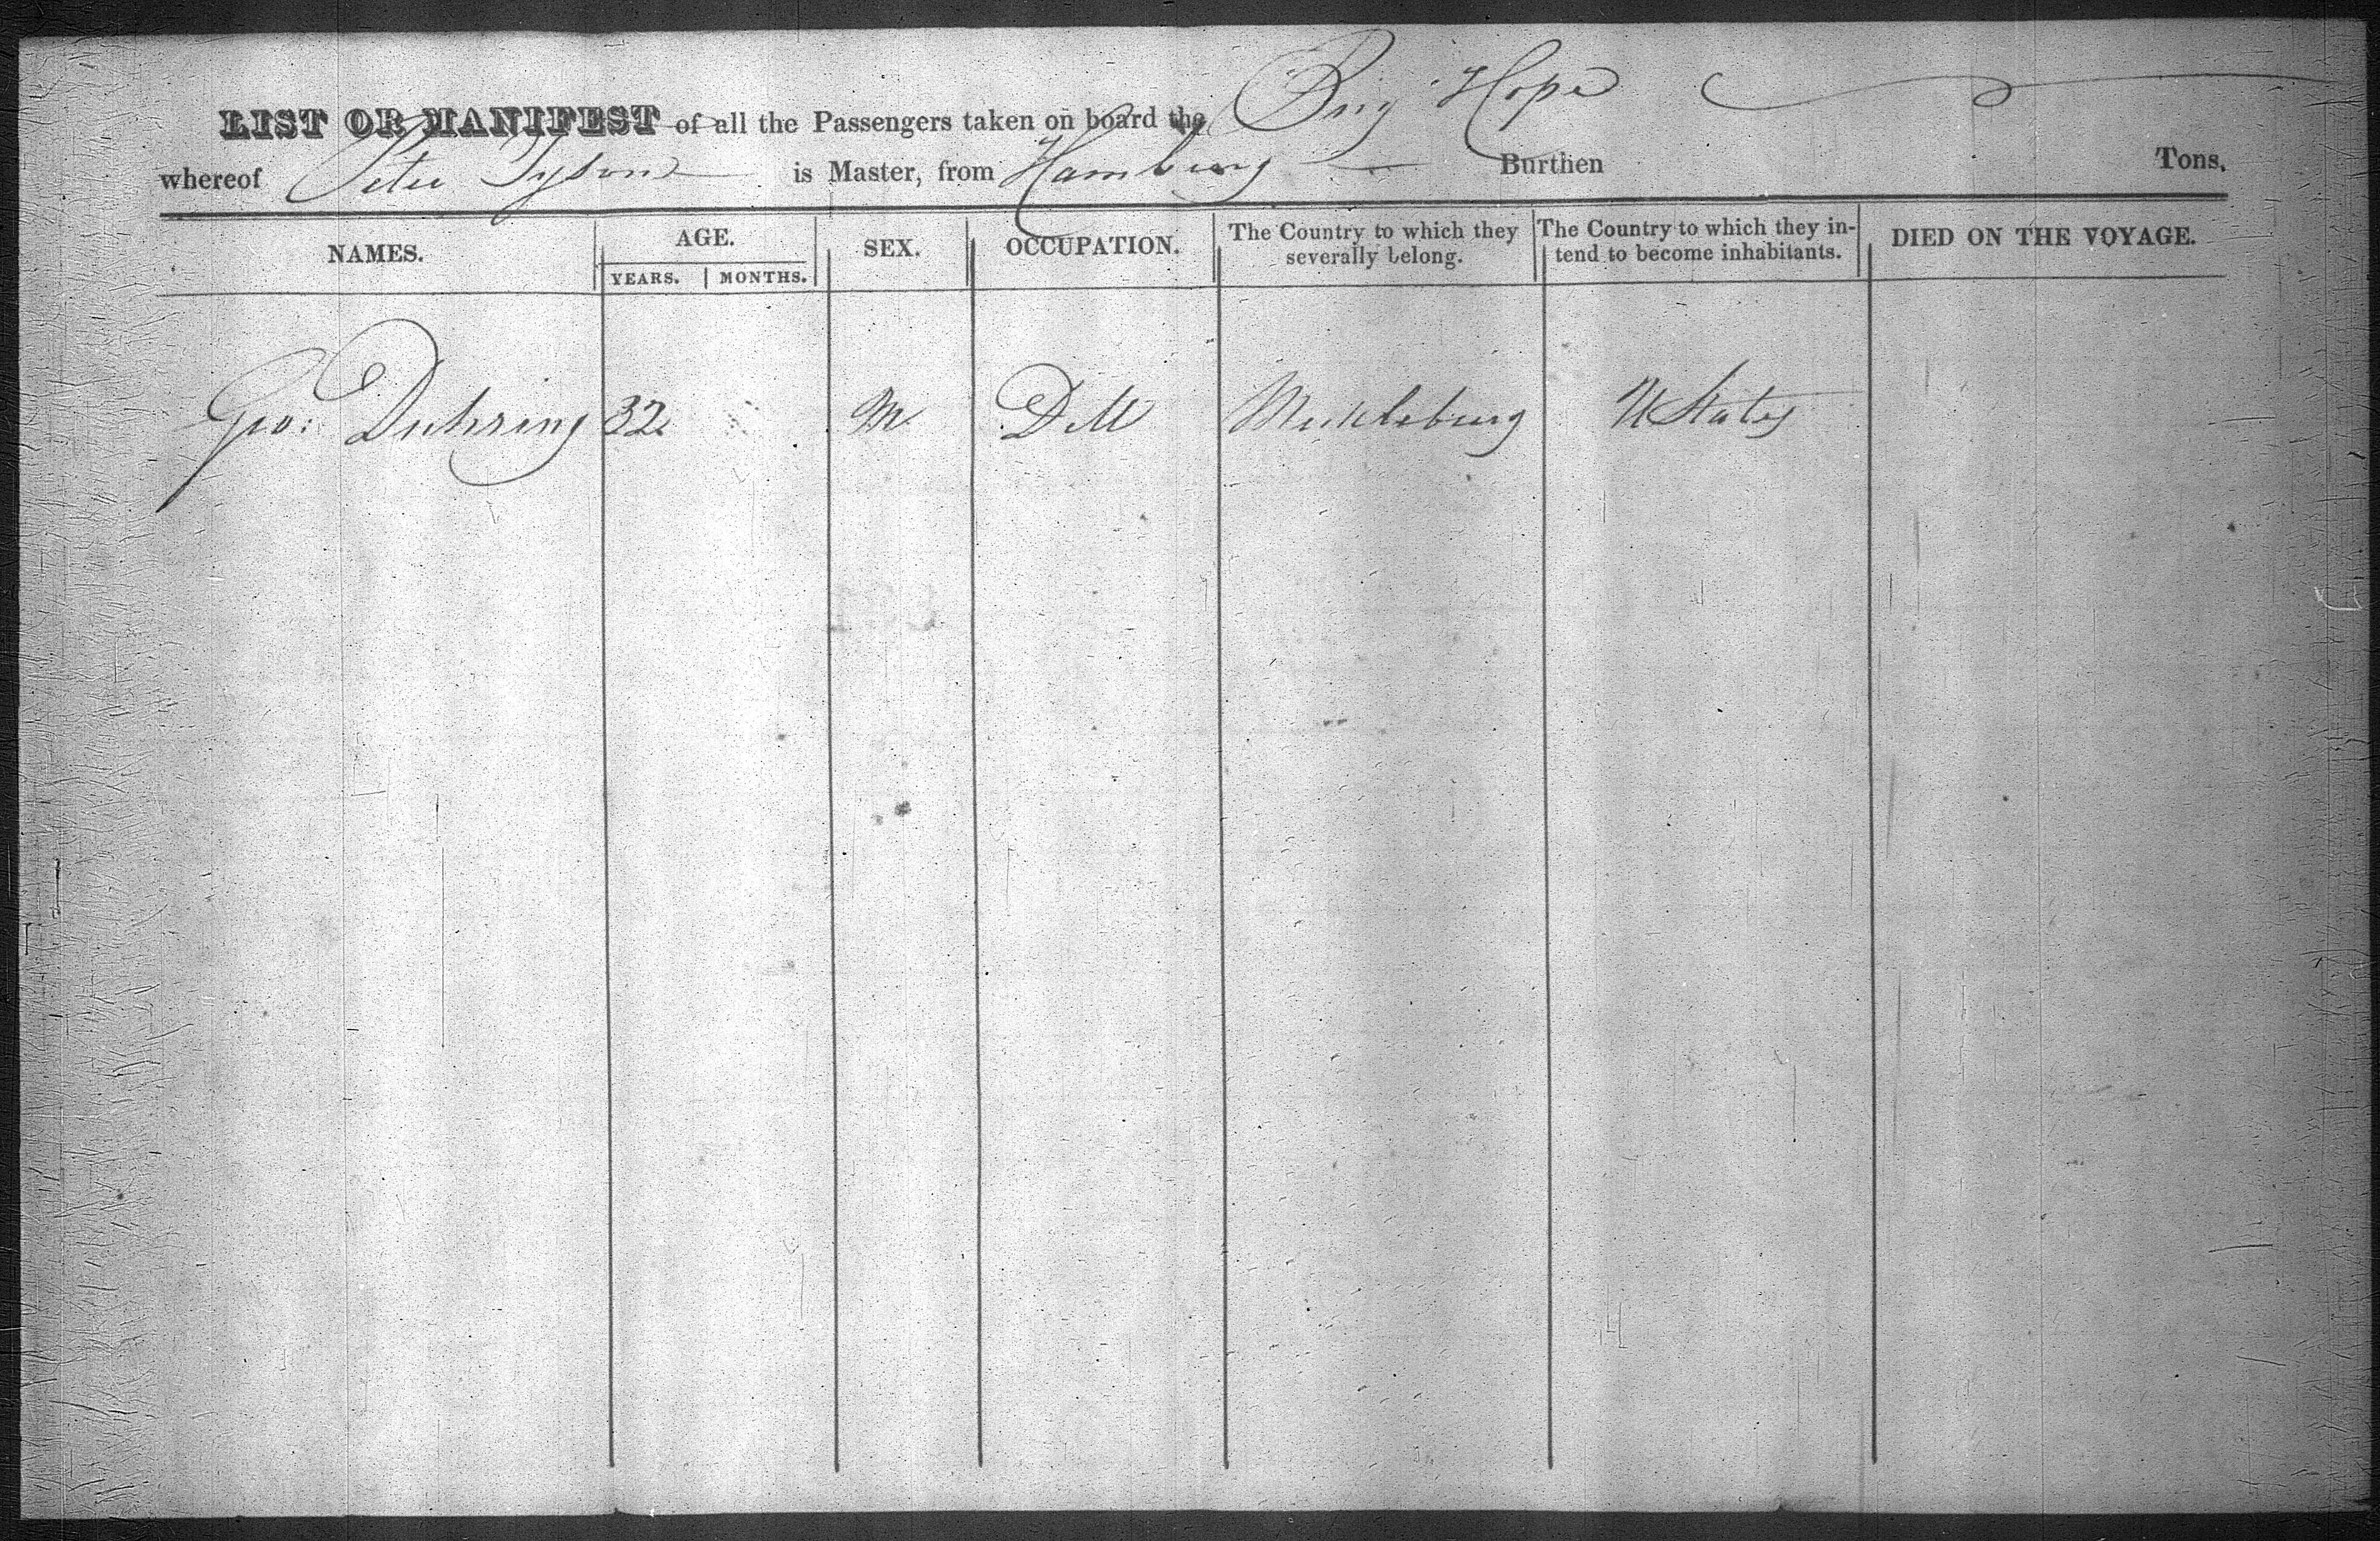 LIST OR MANIFEST of all the Passengers taken on board the Brig Hope
whereof Peter Tyson is Master, from Hamburg Burthen Tons.
NAMES. AGE. YEARS. MONTHS. SEX. OCCUPATION. The Country to which they severally belong. The Country to which they intend to become inhabitants. DIED ON THE VOYAGE.
Geo: Duhring 32 M Meckleburg U States